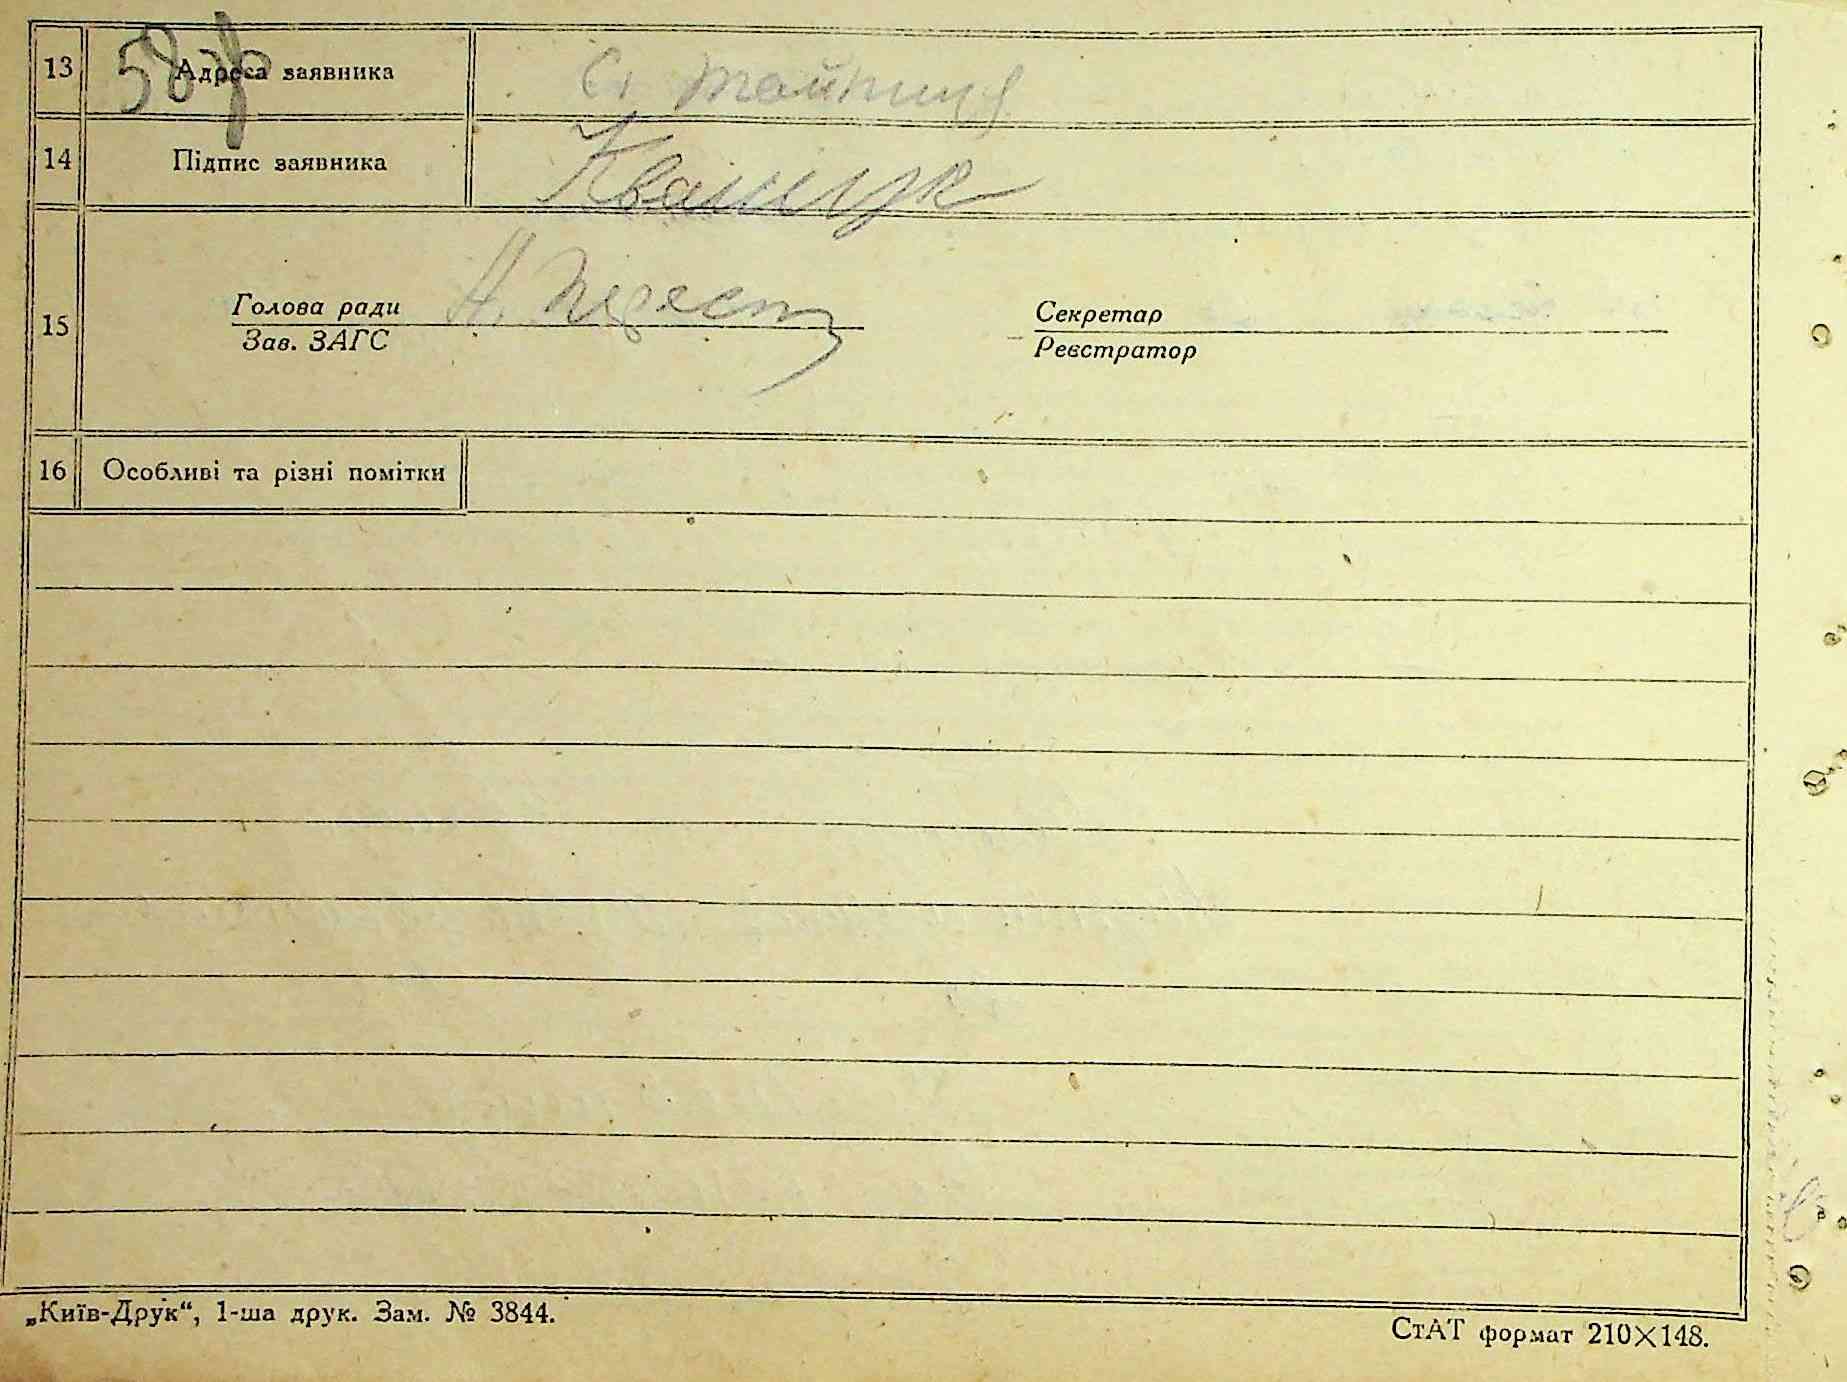 58 зв
13 Адреса заявника
14 Підпис заявника Квашук
15 Голова ради Секретар
Зав. ЗАГС Реєстратор
16 Особливі та різні помітки
„Київ-Друк“, 1-ша друк. Зам. № 3844.
СтАТ формат 210×148.